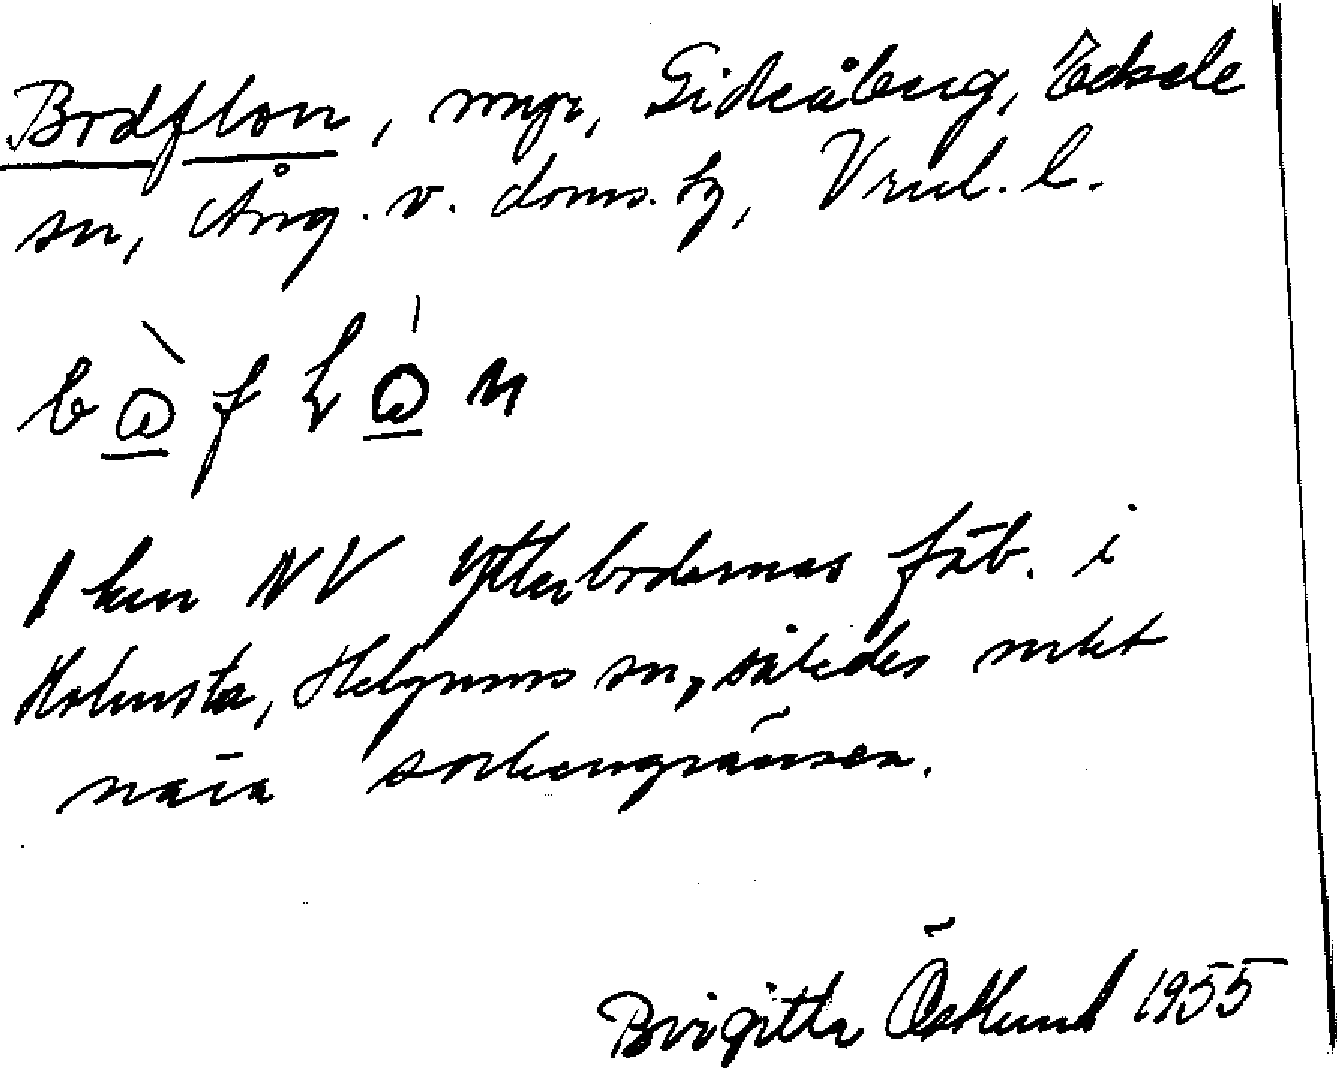 Bodflon, myr, Gideåberg, Edsele
sn, Ång. v. doms. hg, Vnl. l.
1 km NV Ytterbodarnas fäb. i
Holmsta, Helgums sn, således mkt
nära sockengränsen.
Birgitta Östlund 1955